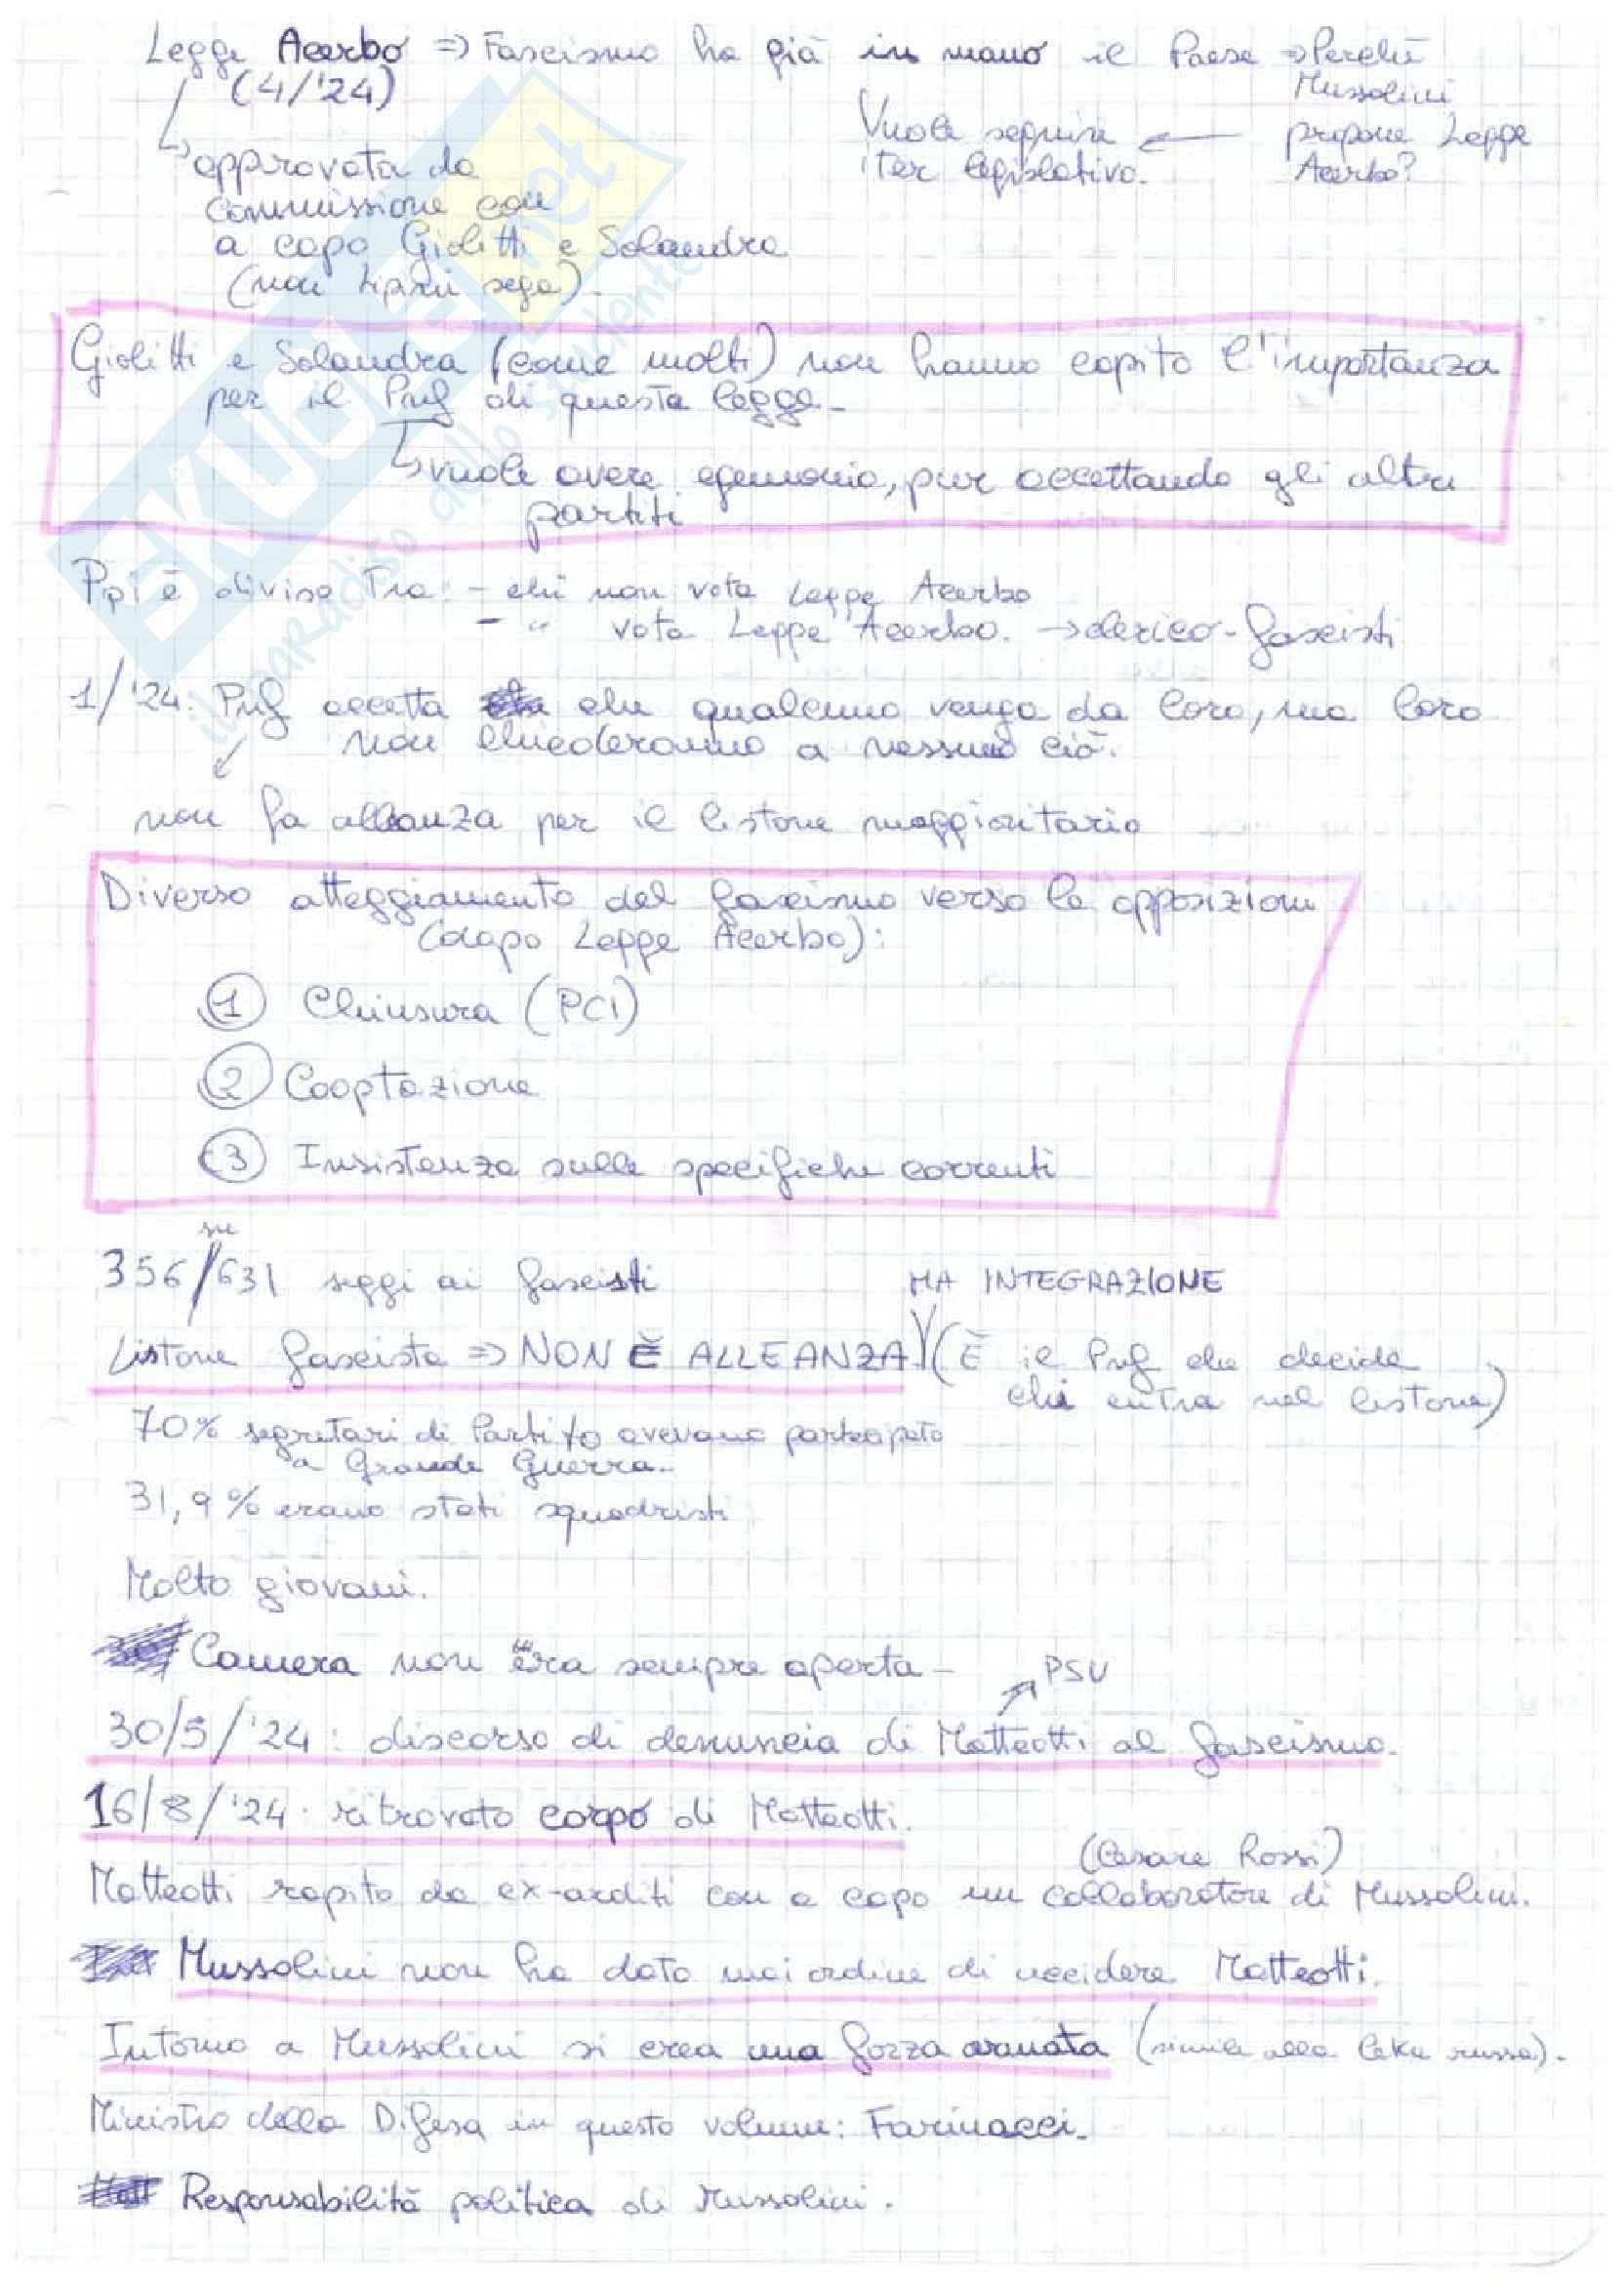 Legge Acerbo => Fascismo ha già in mano il Paese => Perché
(4/'24)
Mussolini
Vuole seguire ← propone Legge
iter legislativo. Acerbo?
↳ approvata da
commissione con
a capo Giolitti e Salandra
(non tipini sega).
Giolitti e Salandra (come molti) non hanno capito l'importanza
per il Pnf di questa legge.
↳ vuole avere egemonia, pur accettando gli altri
partiti
Ppi è diviso Tra: - chi non vota Legge Acerbo
- " vota Legge Acerbo. → clerico-fascisti
1/'24: Pnf accetta che qualcuno venga da loro, ma loro
non chiederanno a nessuno ciò.
↙
non fa alleanza per il listone maggioritario
Diverso atteggiamento del fascismo verso le opposizioni
(dopo Legge Acerbo):
1 Chiusura (PCI)
2 Cooptazione
3 Insistenza sulle specifiche correnti
su
356/631 seggi ai fascisti
MA INTEGRAZIONE
Listone fascista => NON È ALLEANZA (È il Pnf che decide
chi entra nel listone)
70% segretari di Partito avevano partecipato
a Grande Guerra.
31,9% erano stati squadristi
Molto giovani.
Camera non era sempre aperta -
PSU
30/5/'24: discorso di denuncia di Matteotti al fascismo.
16/8/'24: ritrovato corpo di Matteotti.
(Cesare Rossi)
Matteotti rapito da ex-arditi con a capo un collaboratore di Mussolini.
Mussolini non ha dato mai ordine di uccidere Matteotti.
Intorno a Mussolini si crea una forza armata (simile alla Ceka russa).
Ministro della Difesa in questo volume: Farinacci.
Responsabilità politica di Mussolini.
SKUOLA.net
il paradiso dello studente